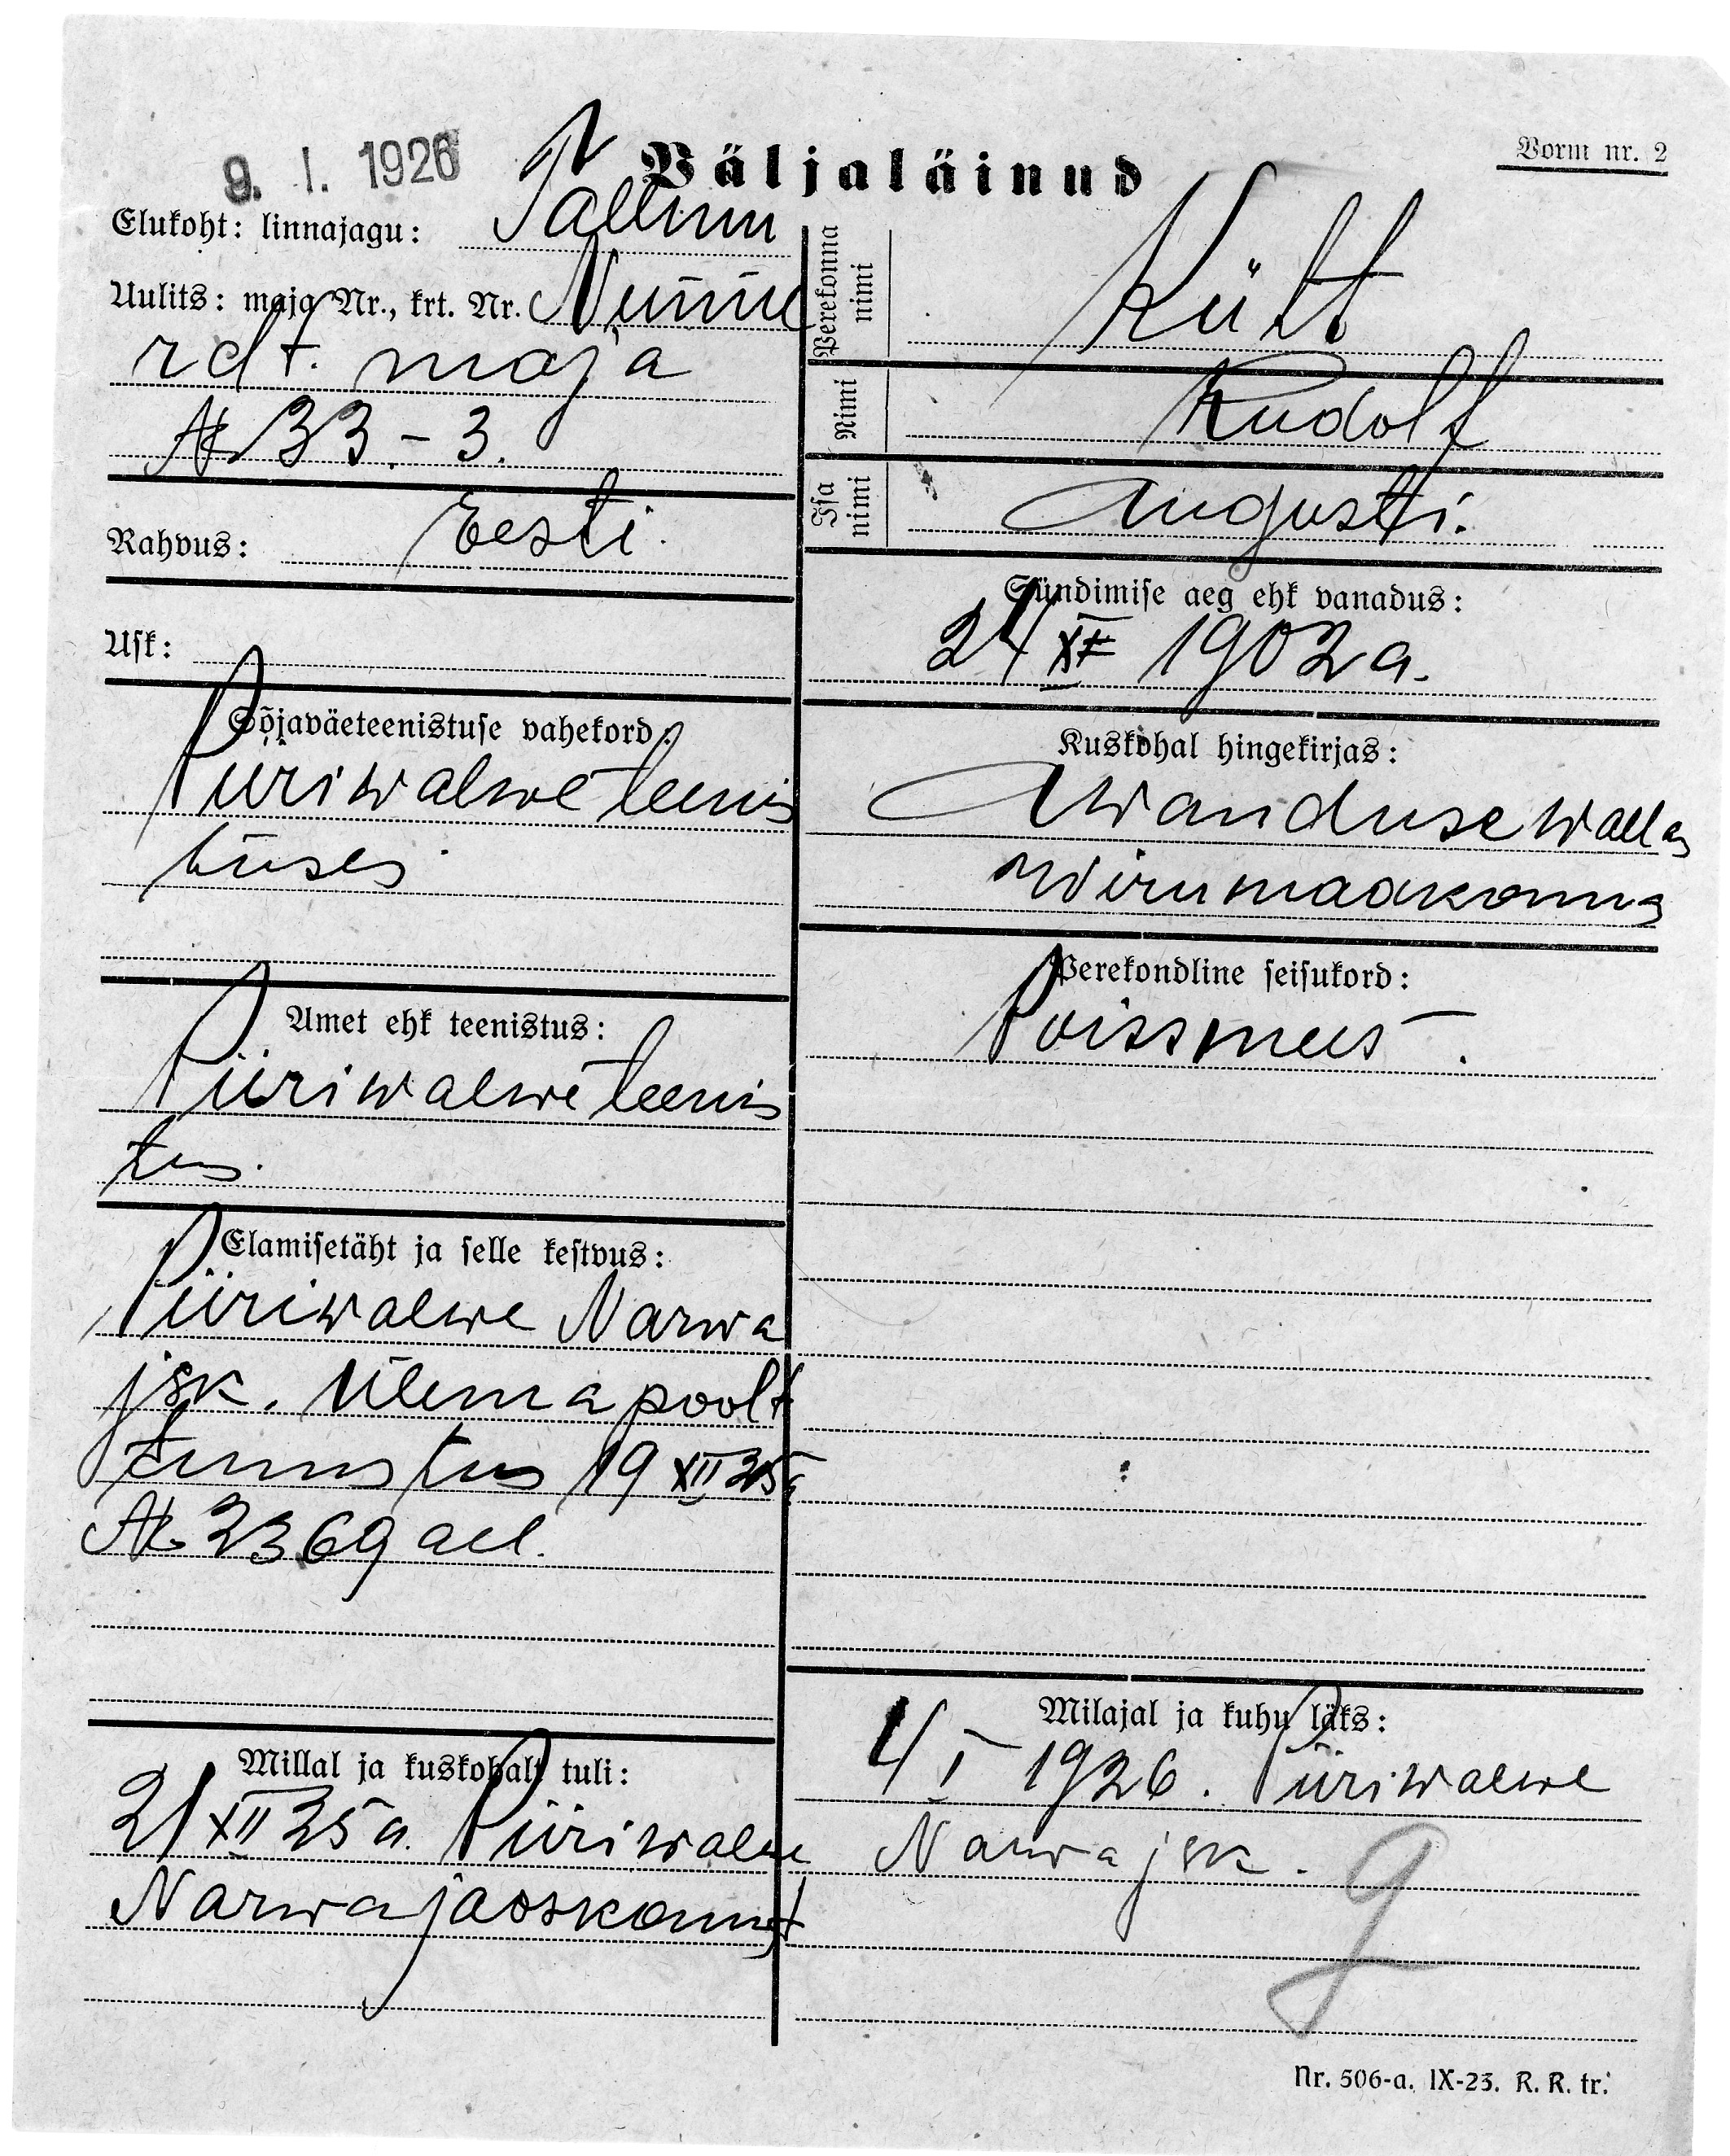 9. I. 1926
Väljaläinud
Vorm nr. 2
Elukoht: linnajagu: Tallinn
Uulits: maja Nr., krt. Nr. Nümme
rdt. maja
№ 33.-3.
Rahvus: Eesti.
Usk:
Sõjaväeteenistuse vahekord:
Piiriwalwe teenis
tuses
Amet ehk teenistus:
Piiriwalwe teenis
tus.
Elamisetäht ja selle kestvus:
Piiriwalwe Narwa
jsk. Ülema poolt
tunnistus 19 XII 25 a
№ 2369 all.
Millal ja kuskohalt tuli:
21 XII 25 a. Piiriwalwe
Narwa jaoskonnast
Perekonna nimi Kütt
Nimi Rudolf
Isa nimi Augusti.
Sündimise aeg ehk vanadus:
24 XI 1902 a.
Kuskohal hingekirjas:
Awanduse wallas
Wirumaakonnas
Perekondline seisukord:
Poissmees.
Milajal ja kuhu läks:
4 I 1926. Piiriwalwe
Narwa jsk.
Nr. 506-a. IX-23. R. R. tr.